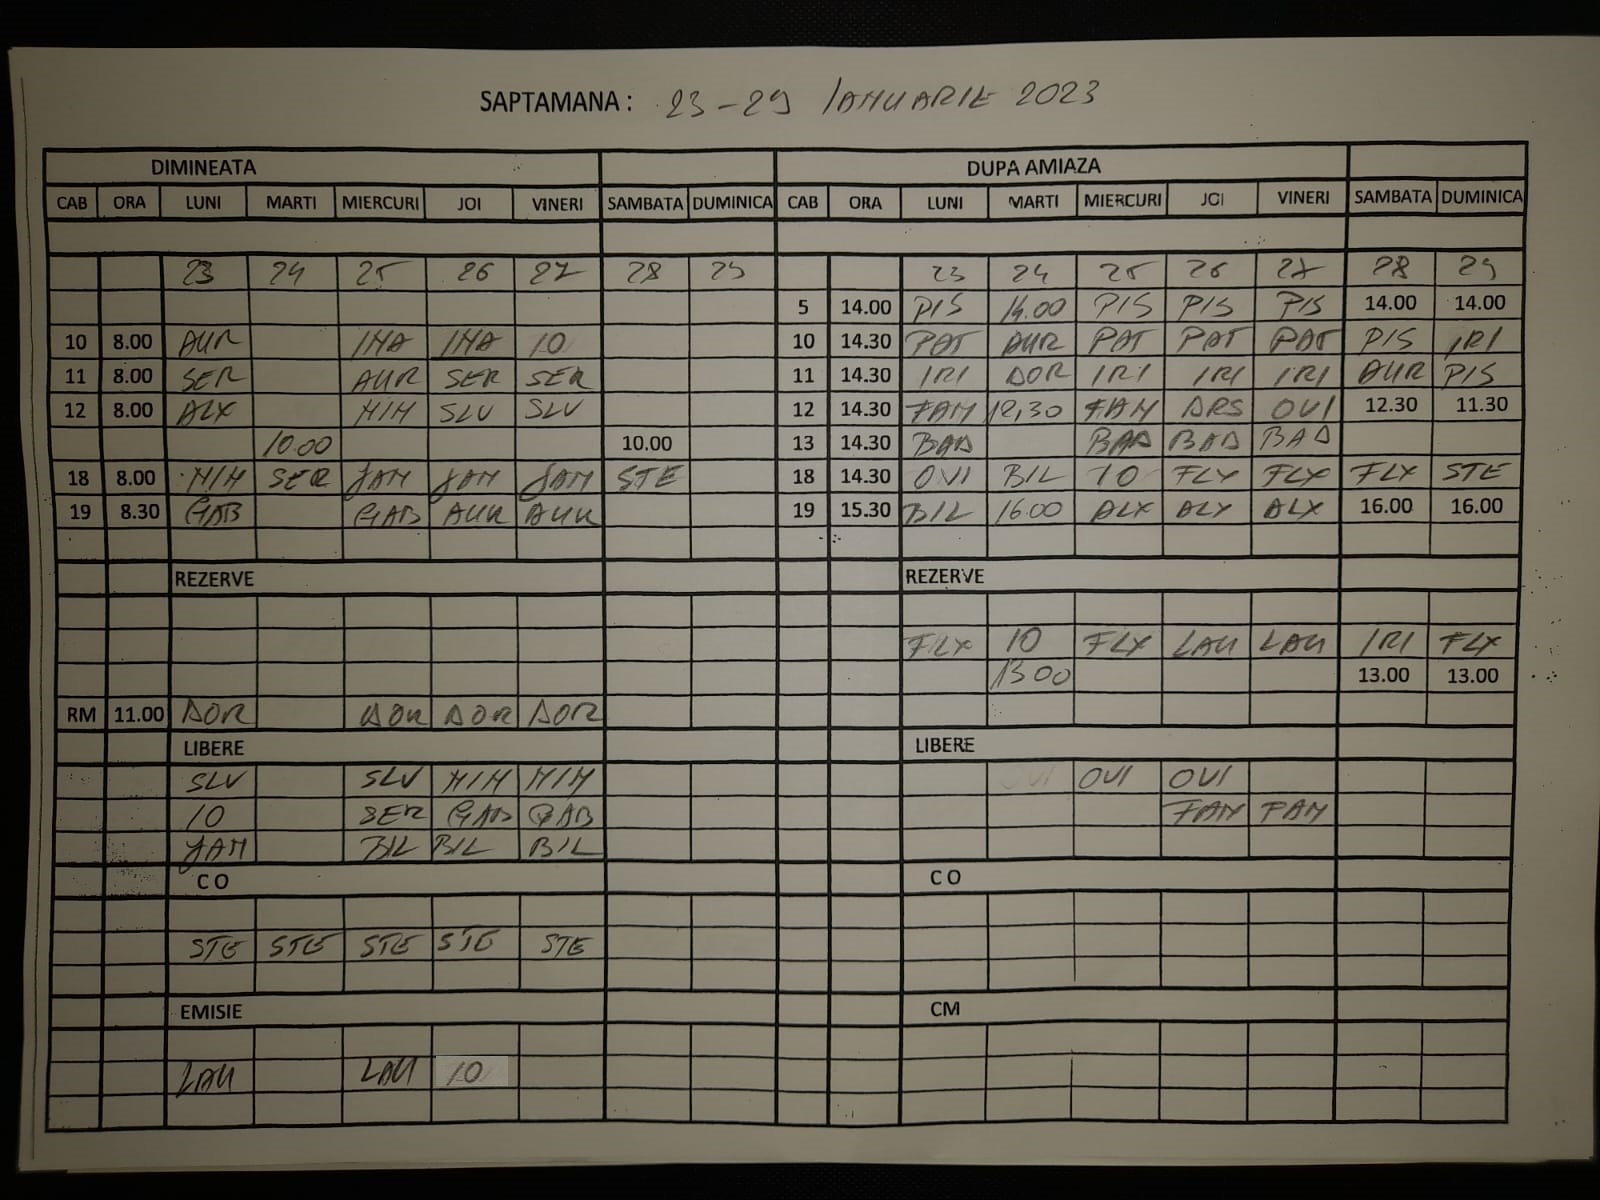 SAPTAMANA : 23-29 IANUARIE 2023
DIMINEATA DUPA AMIAZA
CAB ORA LUNI MARTI MIERCURI JOI VINERI SAMBATA DUMINICA CAB ORA LUNI MARTI MIERCURI JOI VINERI SAMBATA DUMINICA
23 24 25 26 27 28 29 23 24 25 26 27 28 29
5 14.00 PIS 14.00 PIS PIS PIS 14.00 14.00
10 8.00 AUR INA INA IO 10 14.30 PAT AUR PAT PAT PAT PIS IRI
11 8.00 SER AUR SER SER 11 14.30 IRI DOR IRI IRI IRI AUR PIS
12 8.00 ALX MIH SLV SLV 12 14.30 FAM 12,30 FAM ARS OVI 12.30 11.30
10.00 10.00 13 14.30 BAD BAD BAD BAD
18 8.00 MIH SER JAM JAM JAM STE 18 14.30 OVI BIL IO FLX FLX FLX STE
19 8.30 GAB GAB AUR AUR 19 15.30 BIL 16.00 ALX ALX ALX 16.00 16.00
REZERVE REZERVE
FLX IO FLX LAU LAU IRI FLX
13 00 13.00 13.00
RM 11.00 DOR DOR DOR DOR
LIBERE LIBERE
SLV SLV MIH MIH OVI OVI
IO SER GAB GAB FAM FAM
JAM BIL BIL BIL
C O C O
STE STE STE STE STE
EMISIE CM
LAU LAU IO